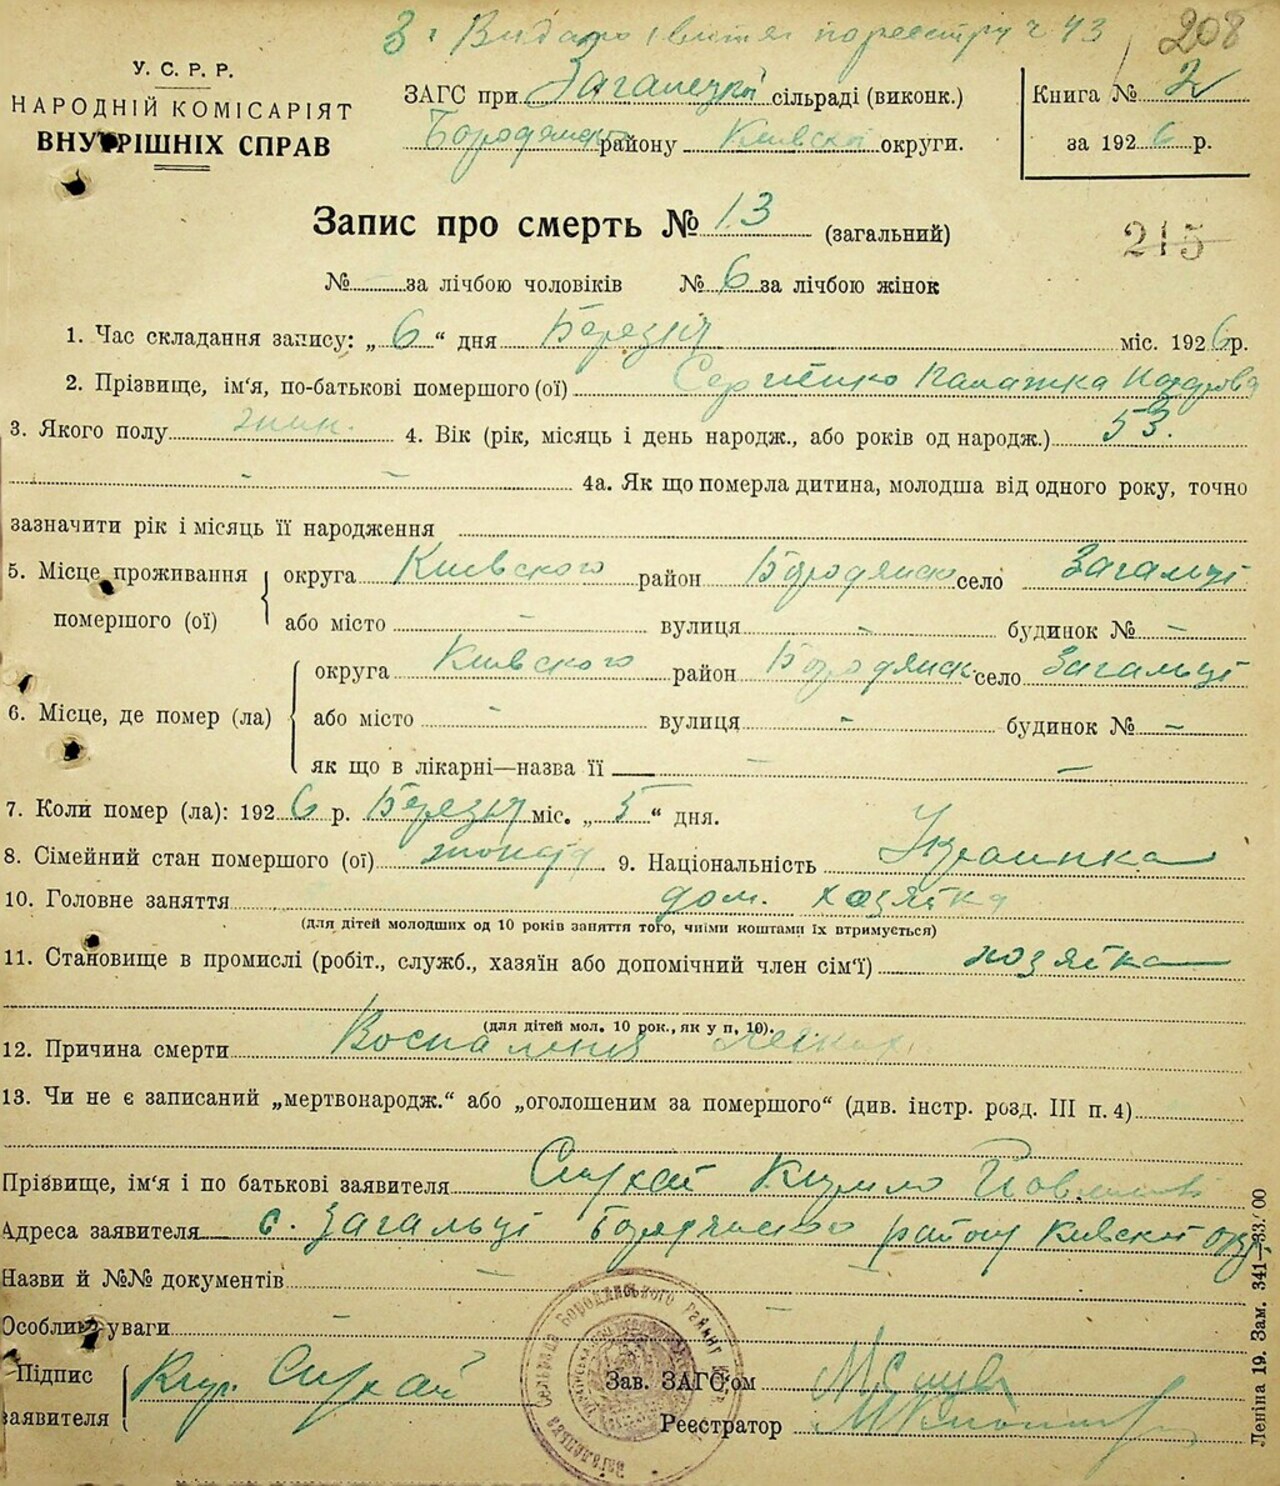 З г Видано квиток по реестру ч 43
208
У. С. Р. Р.
НАРОДНІЙ КОМІСАРІЯТ
ВНУТРІШНІХ СПРАВ
ЗАГС при Загалецкой сільраді (виконк.)
Бородянско району Київской округи.
Книга № 2
за 1926 р.
Запис про смерть № 13 (загальний)
215
№ за лічбою чоловіків № 6 за лічбою жінок
1. Час складання запису: „ 6 “ дня Березня міс. 1926 р.
2. Прізвище, ім'я, по-батькові помершого (ої) Сергиенко Палажка
3. Якого полу жин. 4. Вік (рік, місяць і день народж., або років од народж.) 53.
- - 4а. Як що померла дитина, молодша від одного року, точно
зазначити рік і місяць її народження
5. Місце проживання помершого (ої) округа Киевского район Бородянско село Загальці
або місто - вулиця - будинок № -
6. Місце, де помер (ла) округа Киевского район Бородянск. село Загальці
або місто - вулиця - будинок № -
як що в лікарні—назва її - -
7. Коли помер (ла): 1926 р. Березня міс. „ 5 “ дня.
8. Сімейний стан помершого (ої) 9. Національність Украинка
10. Головне заняття дом. хазяйка
(для дітей молодших од 10 років заняття того, чиїми коштами їх втримується)
11. Становище в промислі (робіт., служб., хазяїн або допомічний член сім'ї) хозяйка
(для дітей мол. 10 рок., як у п. 10).
12. Причина смерти Воспаления легких
13. Чи не є записаний „мертвонародж.“ або „оголошеним за помершого“ (див. інстр. розд. III п. 4)
Прізвище, ім'я і по батькові заявителя Сирхай Кирило
Адреса заявителя с. Загальці Бородянского району Киевскої окр.
Назви й №№ документів - -
Особливі уваги - -
Підпис заявителя Кир. Сирхай
Зав. ЗАГС'ом
Реєстратор
Леніна 19. Зам. 341—33.00